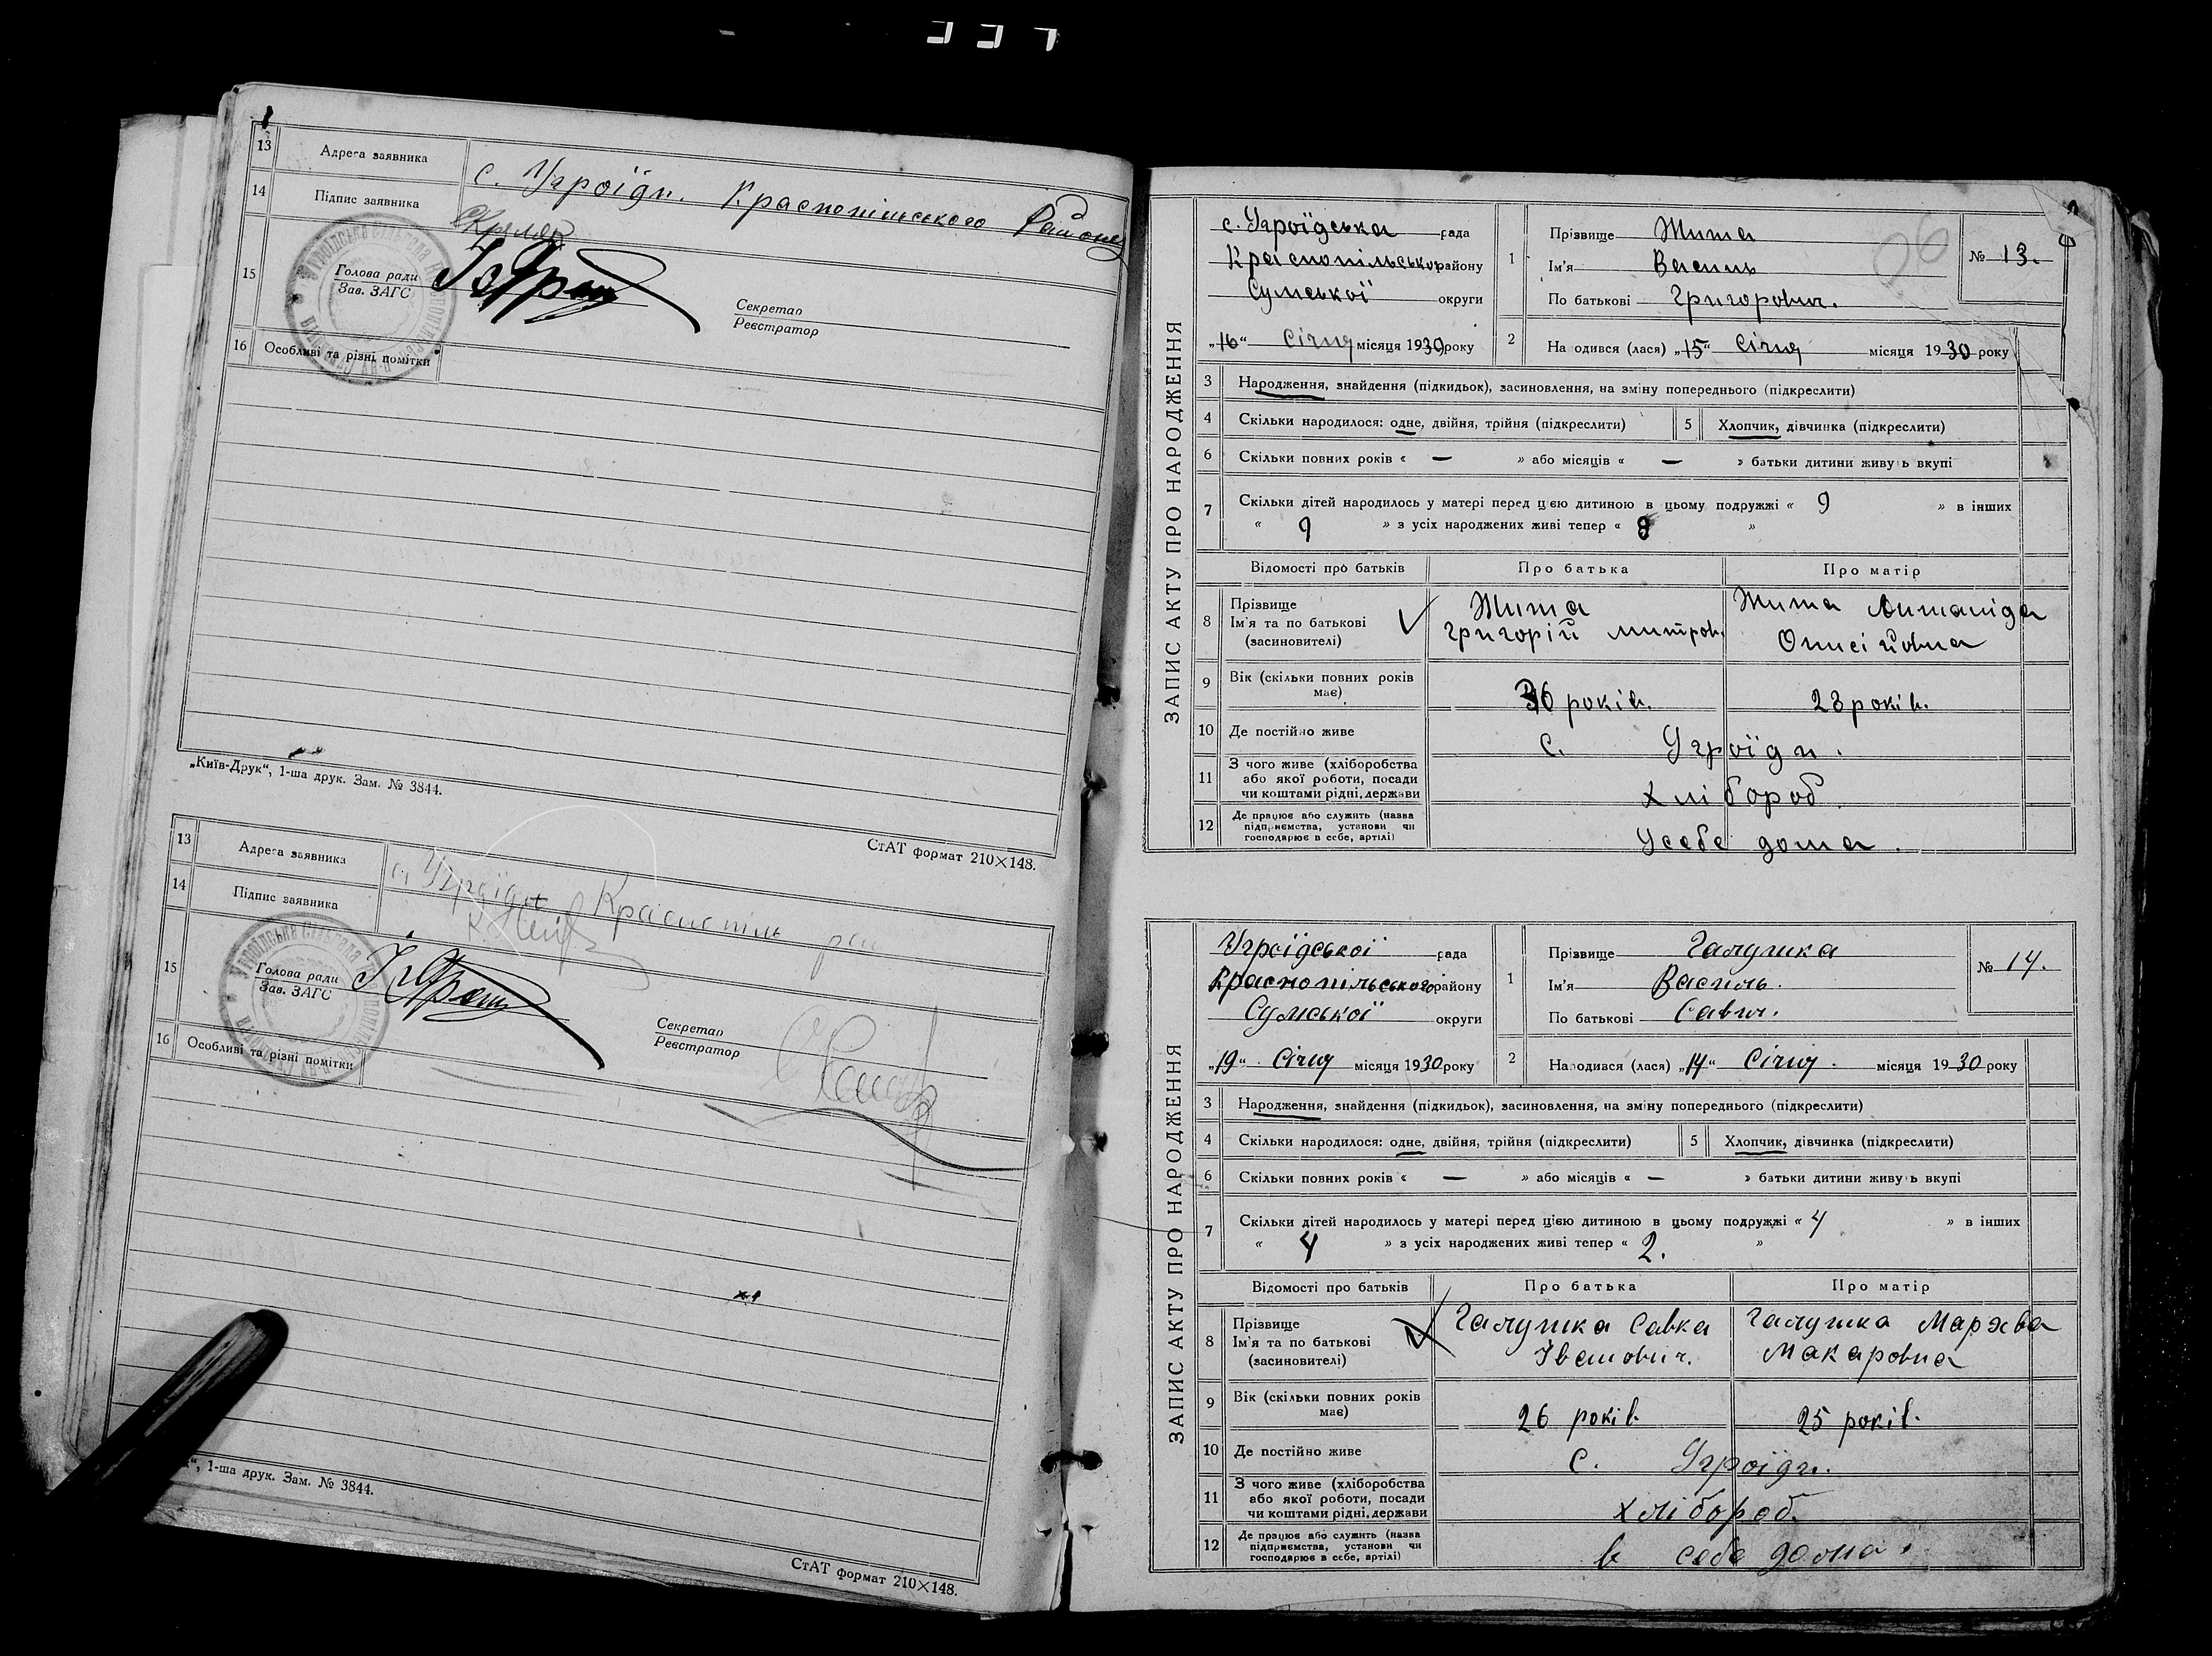 13 Адреса заявника с. Угроїди. Краснопільського Району
14 Підпис заявника
15 Голова ради
Зав. ЗАГС
Секретар
Реєстратор
16 Особливі та різні помітки
„Київ-Друк“, 1-ша друк. Зам. № 3844.
СтАТ формат 210×148.
13 Адреса заявника с. Угроїди Краснопіль
14 Підпис заявника
15 Голова ради
Зав. ЗАГС
Секретар
Реєстратор
16 Особливі та різні помітки
1-ша друк. Зам. № 3844.
СтАТ формат 210×148.
ЗАПИС АКТУ ПРО НАРОДЖЕННЯ
с. Угроїдська рада
Краснопільського району
Сумської округи
„16“ Січня місяця 1930 року
1 Прізвище Жита
Ім'я Василь
По батькові Григорович.
№ 13.
2 Народився (лася) „15“ Січня місяця 1930 року
3 Народження, знайдення (підкидьок), засиновлення, на зміну попереднього (підкреслити)
4 Скільки народилося: одне, двійня, трійня (підкреслити) 5 Хлопчик, дівчинка (підкреслити)
6 Скільки повних років « — » або місяців « — » батьки дитини живуть вкупі
7 Скільки дітей народилось у матері перед цією дитиною в цьому подружжі « 9 » в інших
« 9 » з усіх народжених живі тепер « 8 »
Відомості про батьків Про батька Про матір
8 Прізвище
Ім'я та по батькові
(засиновителі)
Жита
Григорій Митров.
Жита
9 Вік (скільки повних років має) 36 років. 28 років.
10 Де постійно живе с. Угроїди.
11 З чого живе (хліборобства
або якої роботи, посади
чи коштами рідні, держави
хлібороб
12 Де працює або служить (назва
підприємства, установи чи
господарює в себе, артілі)
Усебе дома.
ЗАПИС АКТУ ПРО НАРОДЖЕННЯ
Угроїдської рада
Краснопільського району
Сумської округи
„19“ Січня місяця 1930 року
1 Прізвище Галушка
Ім'я Василь.
По батькові Савич.
№ 14.
2 Народився (лася) „14“ Січня. місяця 1930 року
3 Народження, знайдення (підкидьок), засиновлення, на зміну попереднього (підкреслити)
4 Скільки народилося: одне, двійня, трійня (підкреслити) 5 Хлопчик, дівчинка (підкреслити)
6 Скільки повних років « — » або місяців « — » батьки дитини живуть вкупі
7 Скільки дітей народилось у матері перед цією дитиною в цьому подружжі « 4 » в інших
« 4 » з усіх народжених живі тепер « 2. »
Відомості про батьків Про батька Про матір
8 Прізвище
Ім'я та по батькові
(засиновителі)
Галушка Савка
Іванович.
Галушка
Макаровна
9 Вік (скільки повних років має) 26 років. 25 років.
10 Де постійно живе с. Угроїди.
11 З чого живе (хліборобства
або якої роботи, посади
чи коштами рідні, держави
хлібороб.
12 Де працює або служить (назва
підприємства, установи чи
господарює в себе, артілі)
в себе дома.